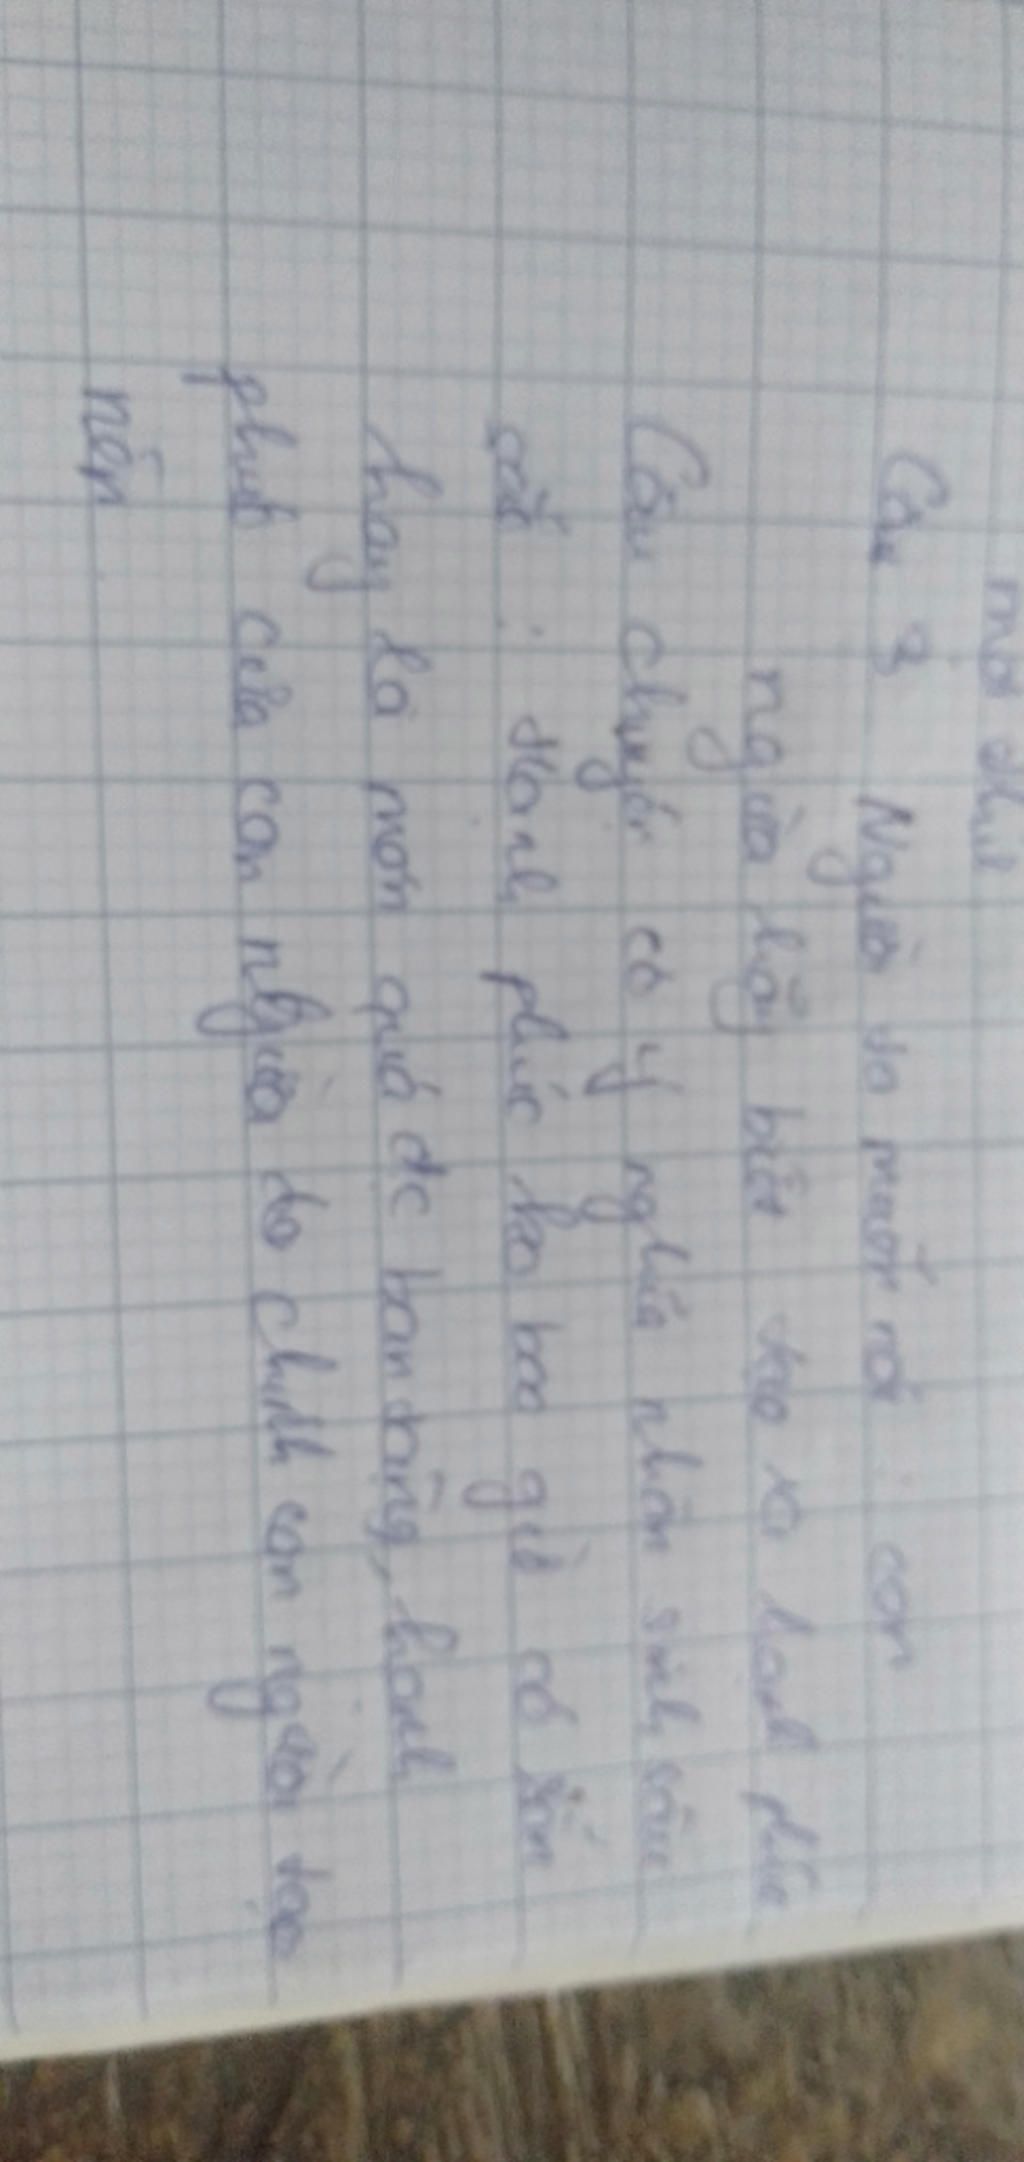 một
Câu 3 Người ta muốn nói : con
người hãy biết tạo ra hạnh phúc
Câu chuyện có ý nghĩa nhân sinh sâu
sắc : Hạnh phúc ko bao giờ có sẵn
hay là món quà đc ban tặng, hạnh
phúc của con người do chính con người tạo
nên